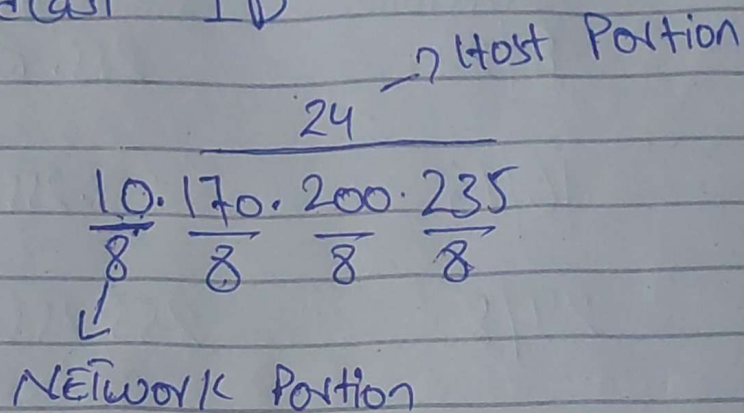 ID
Host Portion
24
10.170.200.235
8 8 8 8
NETWork Portion